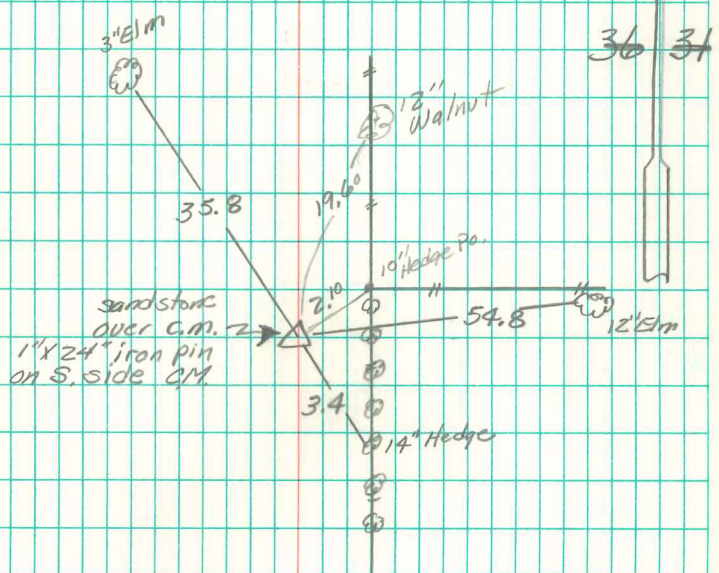 3" Elm
36 31
12"
Walnut
35.8
19.6⁰
10" Hedge Po.
2.¹⁰
sandstone
over C.M.
1" X 24" iron pin
on S. side CM.
54.8
12" Elm
3.4
14" Hedge